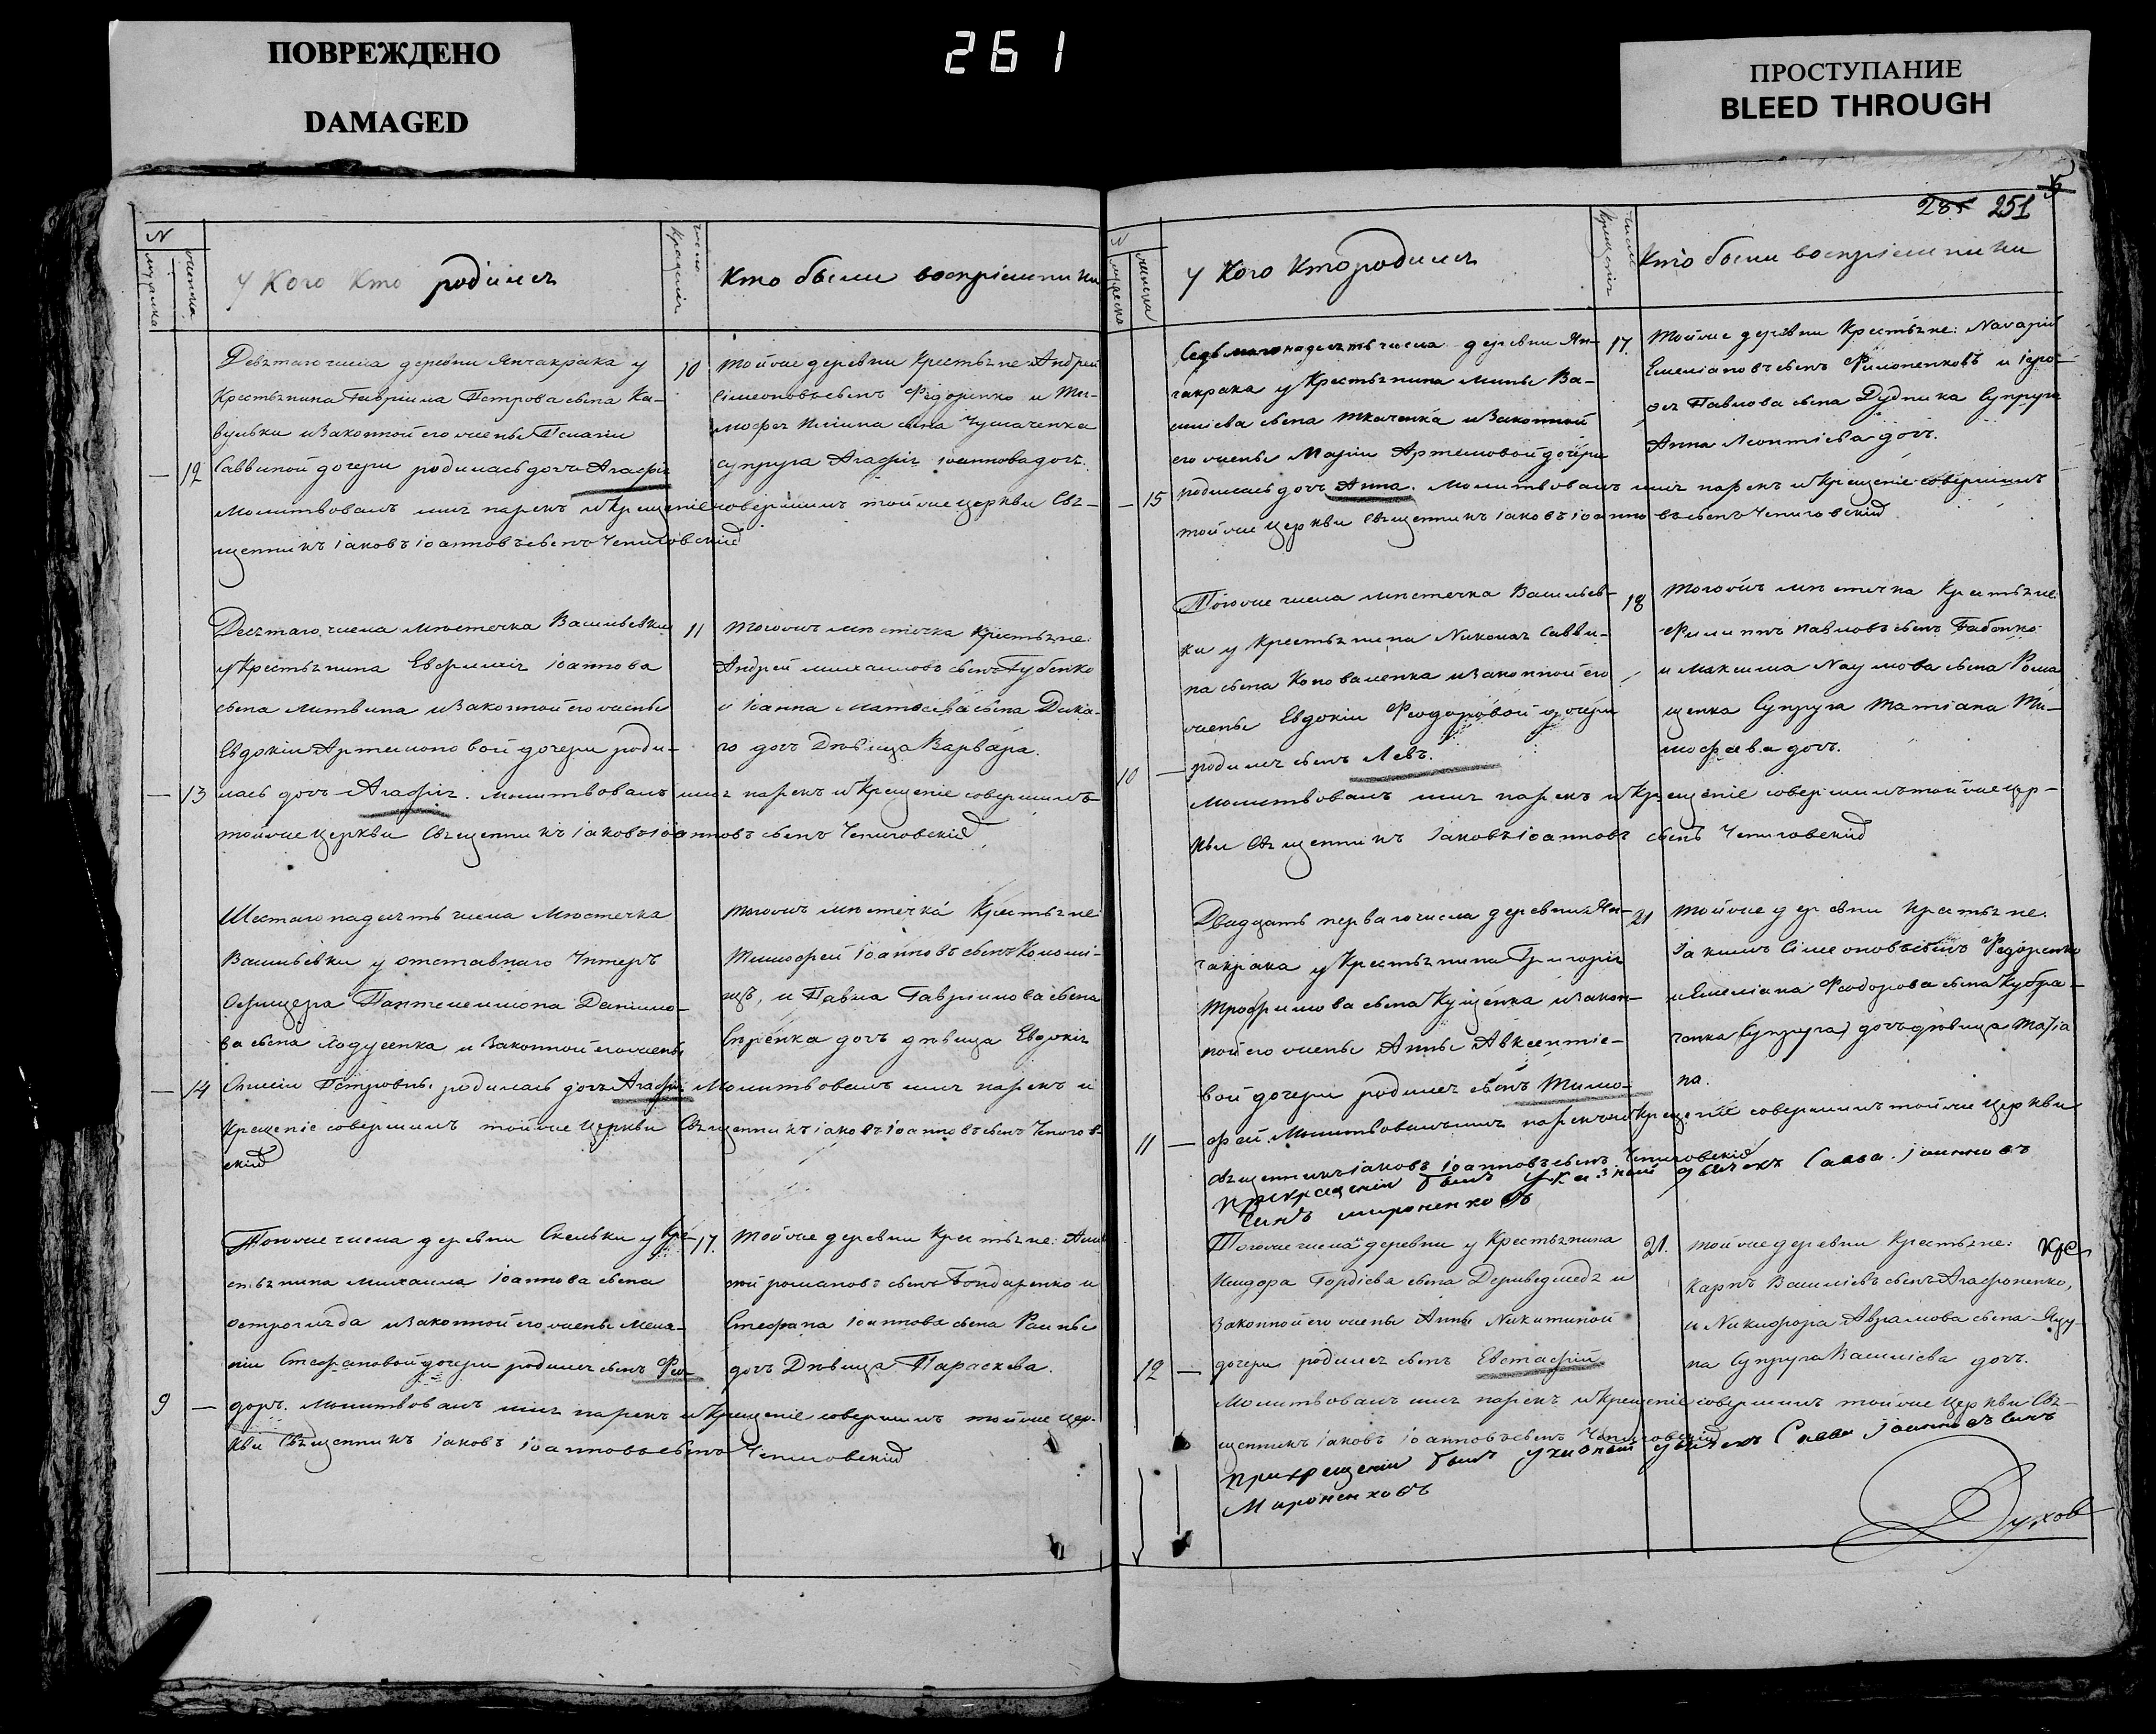 ПОВРЕЖДЕНО
DAMAGED
261
ПРОСТУПАНИЕ
BLEED THROUGH
251
N
мужеска
женска
У Кого Кто родился
число крещенія
Кто были воспріемники
Девятаго числа деревни Янчакрака у
Крестьянина Гавріила Петрова сына Ка-
вульки и Законной его жены Пелагіи
— 12 Саввиной дочери родилась дочь Агафія
Молитвовалъ имя нарекъ и Крещеніе совершилъ тойже церкви Свя-
щенникъ Іаковъ Іоанновъ сынъ Чепиговскій
10 Тойже деревни Крестьяне Андрей
Сімеоновъ сынъ Федоренко и Ти-
мофея сына Чумаченка
супруга Агафія Іоаннова дочь.
Десятаго числа Мѣстечка Васильевки
у Крестьянина Евфимія Іоаннова
сына Литвина и Законной его жены
Евдокіи Артемоновой дочери роди-
— 13 лась дочь Агафія. Молитвовалъ имя нарекъ и Крещеніе совершилъ
тойже Церкви Священникъ Іаковъ Іоанновъ сынъ Чепиговскій
11 Тогожъ мѣстечка Крестьяне:
Андрей Михаиловъ сынъ Губенко
и Іоанна Матвеева сына Дика-
го дочь Дѣвица Варвара.
Шестагонадесять числа Мѣстечка
Васильевки у отставнаго Унтеръ
Офицера Пантелеимона Даніило-
ва сына Ладусенка и Законной его жены
— 14 Петровны родилась дочь Агафія Молитвовалъ имя нарекъ и
Крещеніе совершилъ тойже Церкви Священникъ Іаковъ Іоанновъ сынъ Чепигов-
скій
Тогожъ мѣстечка Крестьяне
Тимофей Іоанновъ сынъ Коломі-
ецъ, и Павла Гавріилова сына
Сѣренка дочь дѣвица Евдокія
Тогоже числа деревни Скельки у Кре-
стьянина Михаила Іоаннова сына
Остроглида и Законной его жены Мела-
ніи Стефановой дочери родился сынъ Фео-
9 — доръ. Молитвовалъ имя нарекъ и Крещеніе совершилъ тойже Цер-
кви Священникъ Іаковъ Іоанновъ сынъ Чепиговскій
17. Тойже деревни Крестьяне:
Романовъ сынъ Бондаренко и
Стефана Іоаннова сына
дочь Дѣвица Параскева.
N
мужеска
женска
У Кого Кто родился
число крещенія
Кто были воспріемники
Седьмагонадесять числа деревни Ян-
чакрака у Крестьянина Мины Ва-
силіева сына Ткаченка и Законной
его жены Маріи Артемовой дочери
— 15 родилась дочь Анна. Молитвовалъ имя нарекъ и Крещеніе совершилъ
тойже Церкви Священникъ Іаковъ Іоанновъ сынъ Чепиговскій
17. Тойже деревни Крестьяне: Назарій
Емеліановъ сынъ Филоненковъ и Іеро-
фея Павлова сына Дудника Супруга
Анна Леонтіева дочь.
Тогоже числа мѣстечка Васильев-
ки у Крестьянина Николая Савви-
на сына Коноваленка и Законной его
жены Евдокіи Феодоровой дочери
10 — родился сынъ Левъ.
Молитвовалъ имя нарекъ и Крещеніе совершилъ тойже Цер-
кви Священникъ Іаковъ Іоанновъ сынъ Чепиговскій
18 Тогожъ мѣстечка Крестьяне
Филиппъ Павловъ сынъ Бабенко
и Максима Наумова сына Рома
щенка Супруга Татіана Ти-
мофеева дочь.
Двадцать перваго числа деревни Ян-
чакрака у Крестьянина Григорія
Трофимова сына Куценка и закон-
ной его жены Анны Авксентіе-
вой дочери родился сынъ Тимо-
11 — фей Молитвовалъ имя нарекъ и Крещеніе совершилъ тойже Церкви
Священникъ Іаковъ Іоанновъ сынъ Чепиговскій
При крещеніи былъ указный дьячекъ Савва Іоанновъ
сынъ Мироненковъ
21 Тойже деревни Крестьяне:
Іакимъ Сімеоновъ сынъ Федоренко
и Емеліана Феодорова сына Кубра-
ченка (Супруга) дочь дѣвица Татіа
на.
Тогоже числа деревни у Крестьянина
Исидора Гордіева сына и
Законной его жены Анны Никитиной
12 — дочери родился сынъ Евстафій
Молитвовалъ имя нарекъ и Крещеніе совершилъ тойже Церкви Свя-
щенникъ Іаковъ Іоанновъ сынъ Чепиговскій
При крещеніи былъ указный дьячекъ Савва Іоанновъ сынъ
Мироненковъ
21. Тойже деревни Крестьяне:
Карпъ Василіевъ сынъ Агафоненко,
и Никифора Аврамова сына Яцу-
на Супруга Василіева дочь.
Духов